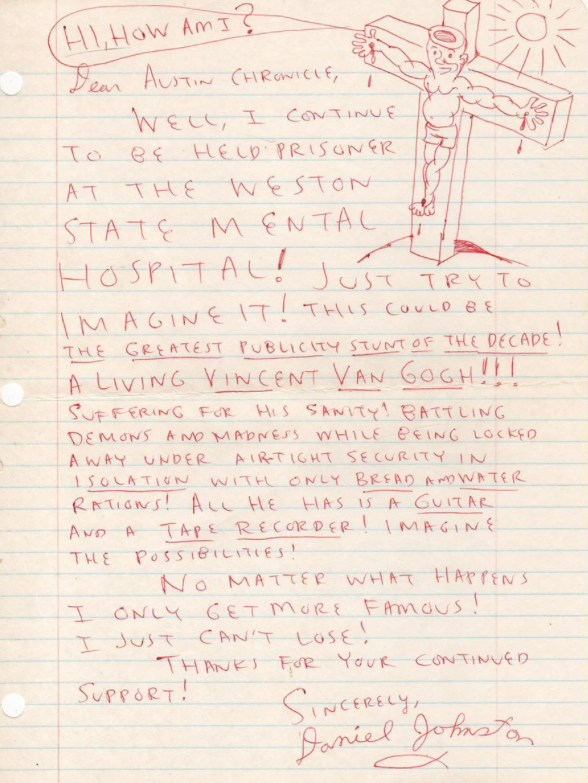 HI, HOW AM I?
Dear AUSTIN CHRONICLE,
WELL, I CONTINUE
TO BE HELD PRISONER
AT THE WESTON
STATE MENTAL
HOSPITAL! JUST TRY TO
IMAGINE IT! THIS COULD BE
THE GREATEST PUBLICITY STUNT OF THE DECADE!
A LIVING VINCENT VAN GOGH!!!
SUFFERING FOR HIS SANITY! BATTLING
DEMONS AND MADNESS WHILE BEING LOCKED
AWAY UNDER AIR-TIGHT SECURITY IN
ISOLATION WITH ONLY BREAD AND WATER
RATIONS! ALL HE HAS IS A GUITAR
AND A TAPE RECORDER! IMAGINE
THE POSSIBILITIES!
NO MATTER WHAT HAPPENS
I ONLY GET MORE FAMOUS!
I JUST CAN'T LOSE!
THANKS FOR YOUR CONTINUED
SUPPORT!
SINCERELY,
Daniel Johnston